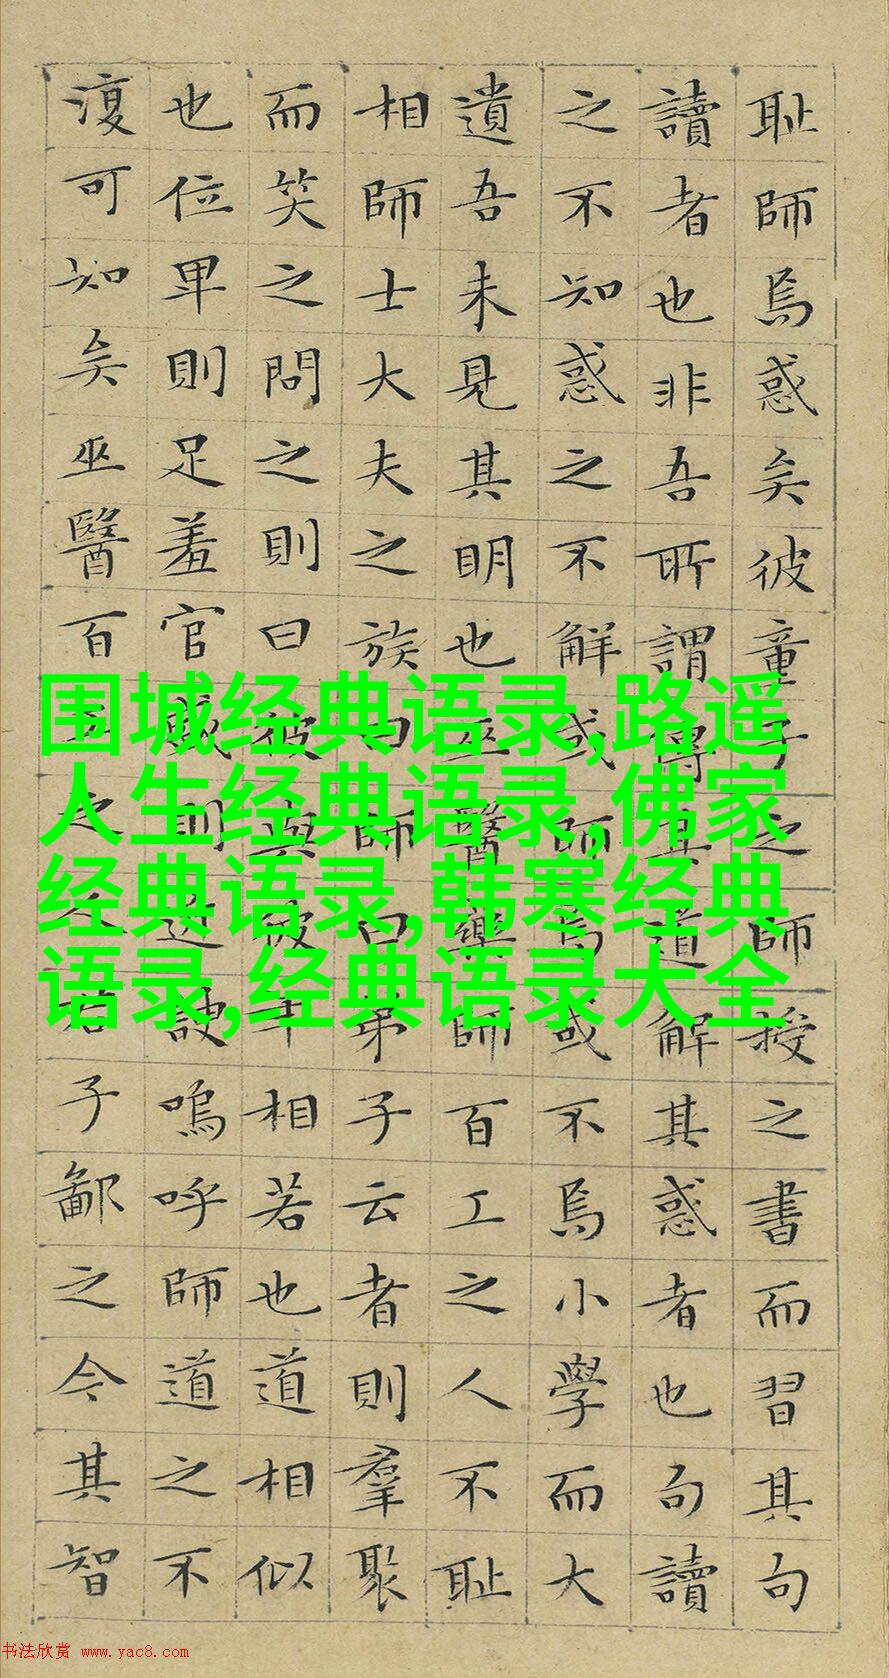 耻師焉惑矣彼童子之師授之書而習其句
讀者也非吾所謂傳其道解其惑者也句讀
之不知惑之不解或師焉或不焉小學而大
遺吾未見其明也巫醫藥師百工之人不耻
相師士大夫之族曰師曰弟子云者則羣聚
而笑之問之則曰彼與彼年相若也道相似
也位卑則足羞官盛則近諛嗚呼師道之不
復可知矣巫醫百工之人君子鄙之今其智
围城经典语录,路遥
人生经典语录,佛家
经典语录,韩寒经典
语录,经典语录大全
书法欣赏 www.yac8.com